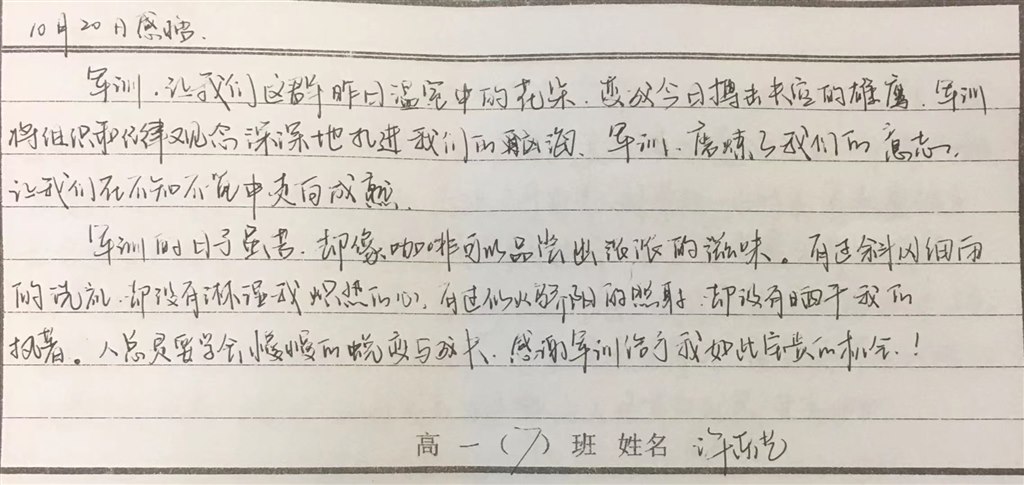 10月20日感悟.
军训,让我们这群昨日温室中的花朵,变成今日搏击长空的雄鹰,军训
将组织和纪律观念深深地扎进我们的脑海,军训,磨炼了我们的意志,
让我们在不知不觉中走向成熟.
军训的日子虽苦,却像咖啡可以品尝出浓浓的滋味。有过斜风细雨
的洗礼,却没有淋湿我炽热的心,有过似火骄阳的照射,却没有晒干我的
执著。人总是要学会慢慢的蜕变与成长,感谢军训给予我如此宝贵的机会!
高一(7)班 姓名 许东艺